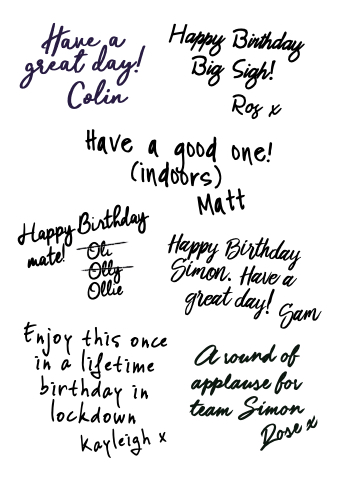 Have a
great day!
Colin
Happy Birthday
Big Sigh!
Ros x
Have a good one!
(indoors)
Matt
Happy Birthday
mate!
Oli
Olly
Ollie
Happy Birthday
Simon. Have a
great day!
Sam
Enjoy this once
in a lifetime
birthday in
lockdown
Kayleigh x
A round of
applause for
team Simon
Rose x